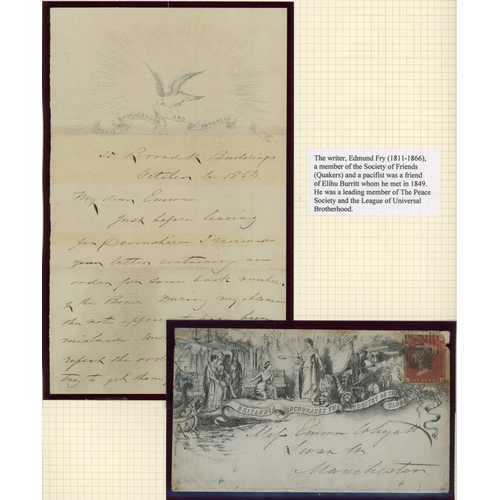 BROTHERHOOD AND PROGRESS
35 Broad St Buildings
October 6 1853
My dear Emma
Just before leaving
for Devonshire I received
your letter containing an
order for some back numbers
of the Bond. During my absence
the note appears to have been
mislaid.
repeat the order
try to get them
The writer, Edmund Fry (1811-1866),
a member of the Society of Friends
(Quakers) and a pacifist was a friend
of Elihu Burritt whom he met in 1849.
He was a leading member of The Peace
Society and the League of Universal
Brotherhood.
BRITANNIA ENCOURAGES THE INDUSTRY OF THE GLOBE
Miss Emma
Swan St
Manchester